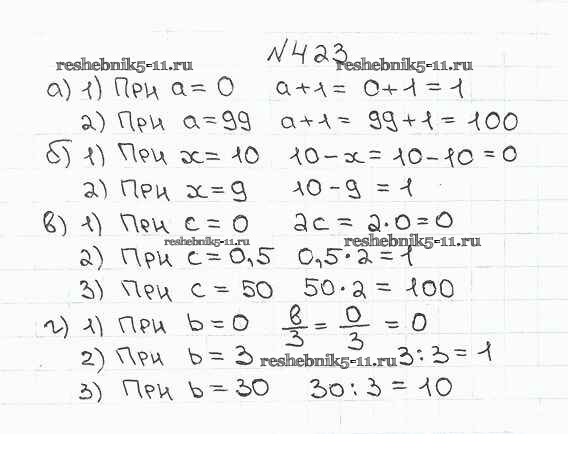 №423
reshebnik5-11.ru reshebnik5-11.ru
а) 1) При a = 0 a+1 = 0+1 = 1
2) При a = 99 a+1 = 99+1 = 100
б) 1) При x = 10 10-x = 10-10 = 0
2) При x = 9 10-9 = 1
в) 1) При c = 0 2c = 2·0 = 0
reshebnik5-11.ru reshebnik5-11.ru
2) При c = 0,5 0,5·2 = 1
3) При c = 50 50·2 = 100
г) 1) При b = 0 в/3 = 0/3 = 0
2) При b = 3 reshebnik5-11.ru 3:3 = 1
3) При b = 30 30:3 = 10